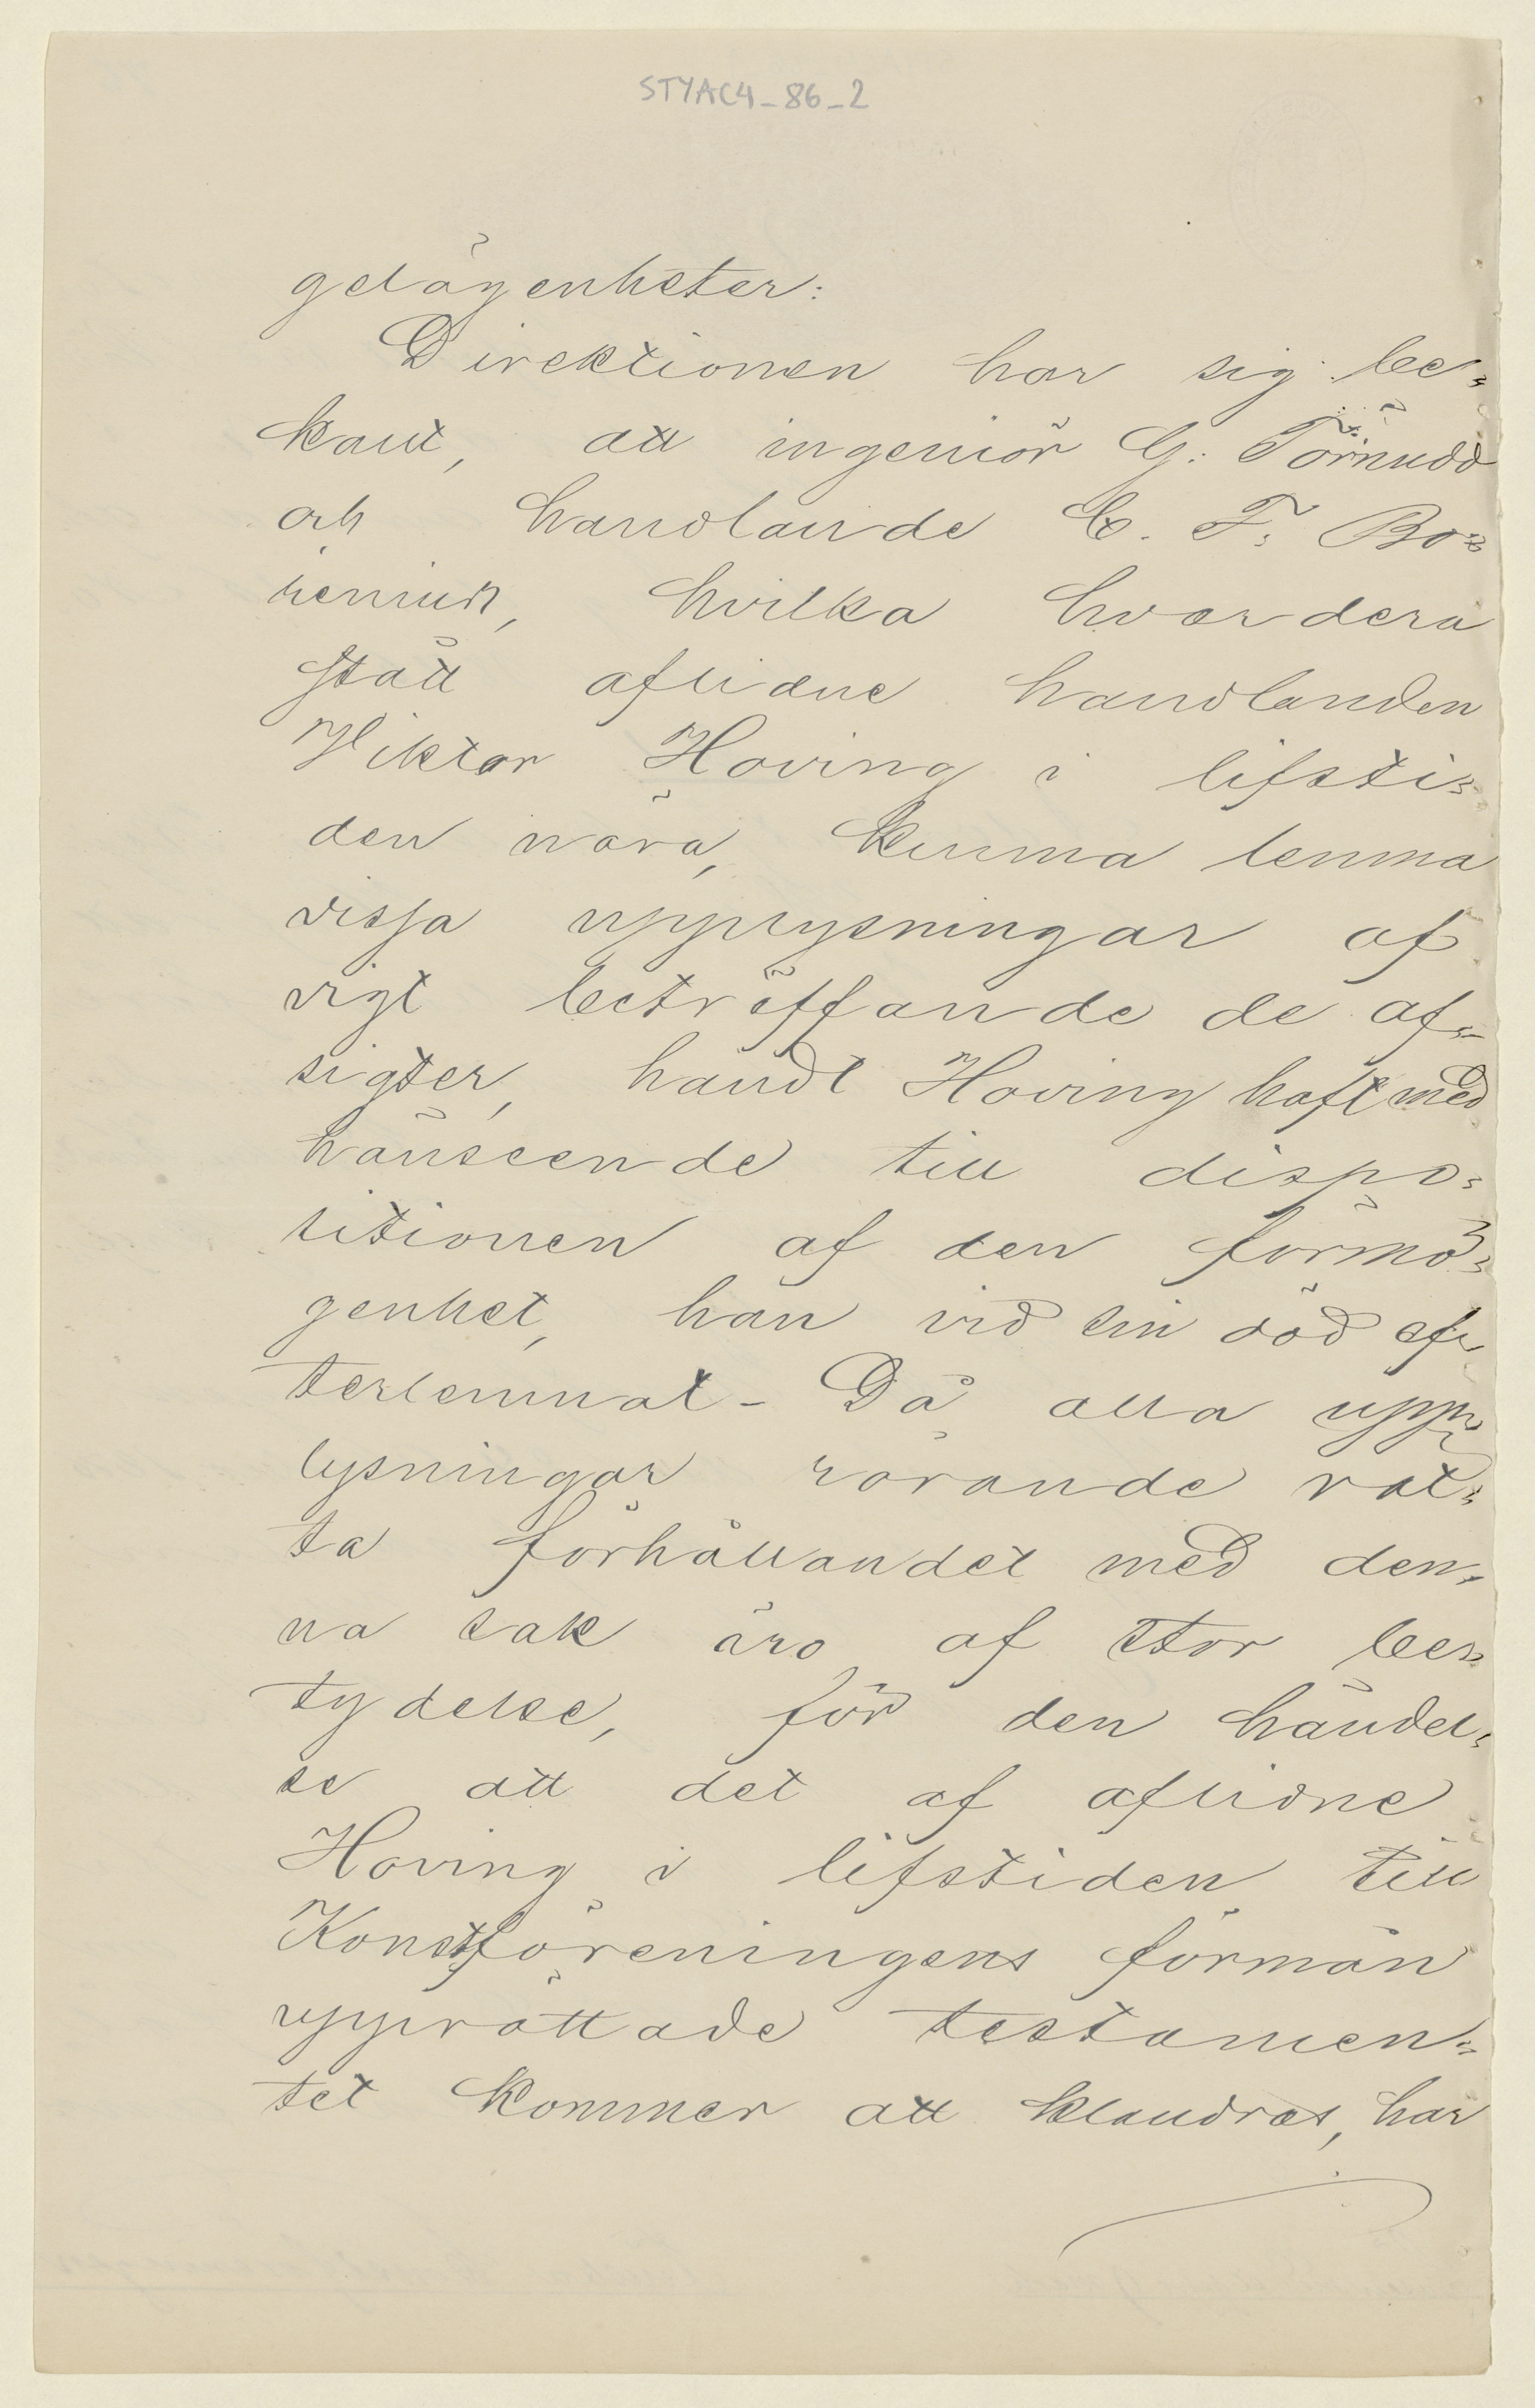 STYAC4-86-2
gelägenheter:
Direktionen har sig be-
kant, att ingeniör G. Törnudd
och handlande C. F. Bo-
renius, hvilka hvardera
stått aflidne handlanden
Viktor Hoving i lifsti-
den nära, kunna lemna
vissa upplysningar af
vigt beträffande de af-
sigter, handl Hoving haft med
hänseende till dispo-
sitionen af den förmö-
genhet, han vid sin död ef-
terlemnat - Då alla upp-
lysningar rörande rät-
ta förhållandet med den-
na sak äro af stor be-
tydelse, för den händel-
se att det af aflidne
Hoving i lifstiden till
Konstföreningens förmån
upprättade testamen-
tet kommer att klandras, har